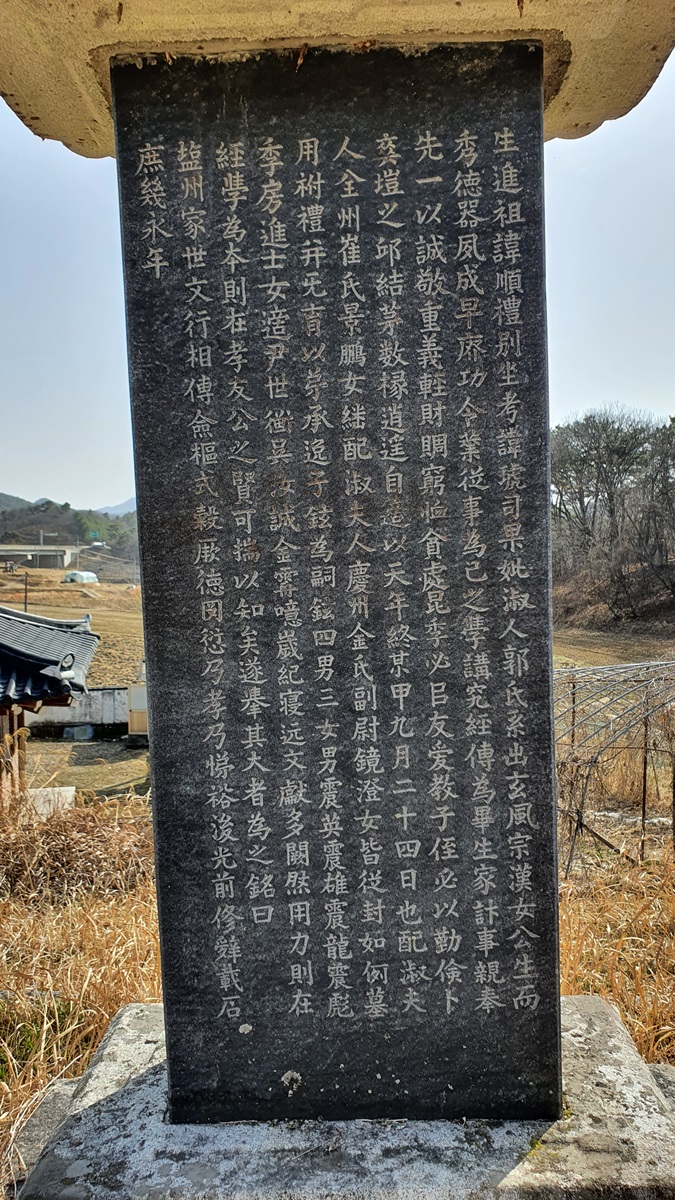 生進祖諱順禮別坐考諱琥司果妣淑人郭氏系出玄風宗漢女公生而
秀德器夙成早廢功令業從事為己之學講究經傳為畢生家計事親奉
先一以誠敬重義輕財賙窮恤貧處昆季必曰友愛教子侄必以勤儉卜
爽塏之邱結茅数椽逍遥自適以天年終某甲九月二十四日也配淑夫
人全州崔氏景鵬女継配淑夫人慶州金氏副尉鏡澄女皆從封如例墓
用祔禮并旡育以參承逸子鉉為嗣鉉四男三女男震英震雄震龍震彪
季房進士女適尹世衡吳汝誠金霽噫歲紀寝远文獻多闕然用力則在
經學為夲則在孝友公之賢可揣以知矣遂擧其大者為之銘曰
塩州家世文行相傳僉樞式穀厥德罔愆乃孝乃悌裕後光前修辭載石
庶幾永年